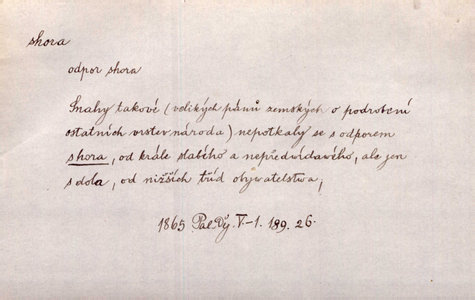 shora
odpor shora
Snahy takové (velikých pánů zemských o podrobení
ostatních vrstev národa) nepotkaly se s odporem
shora, od krále slabého a nepředvídavého, ale jen
s dola, od nižších tříd obyvatelstva,
1865 Pal. Děj. V-1. 189. 26.